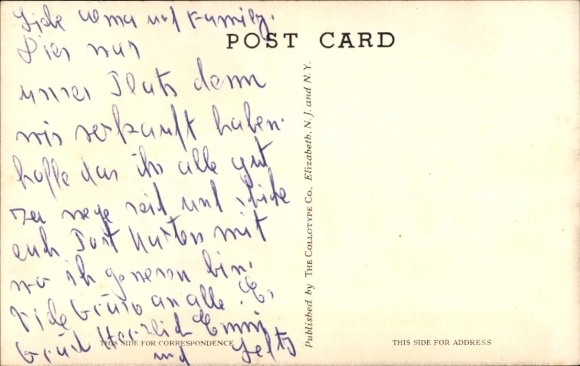 Liebe Oma und Family.
POST CARD
Dies war
unser Platz denn
wir verkauft haben.
hoffe das ihr alle gut
zu wege seid und schicke
euch Post Karten mit
wo ich gewesen bin.
an alle.
und
Published by THE COLLOTYPE CO., Elizabeth, N. J. and N. Y.
THIS SIDE FOR CORRESPONDENCE
THIS SIDE FOR ADDRESS